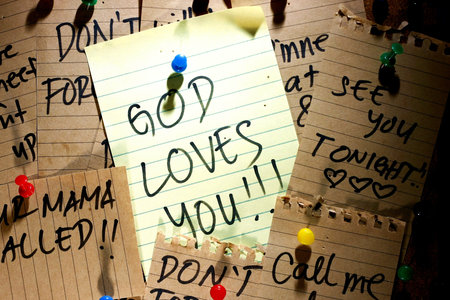 DON'T
FOR
GOD
LOVES
YOU!!!
at
&
SEE
YOU
TONIGHT!
♡♡♡
up
MAMA
ALLED!!
DON'T
Call me